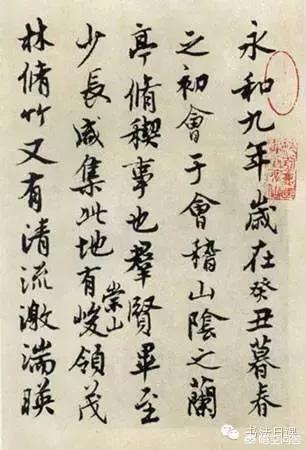 永和九年歲在癸丑暮春
之初會于會稽山陰之蘭
亭脩稧事也羣賢畢至
少長咸集此地有崇山峻領茂
林脩竹又有清流激湍暎
书法日课